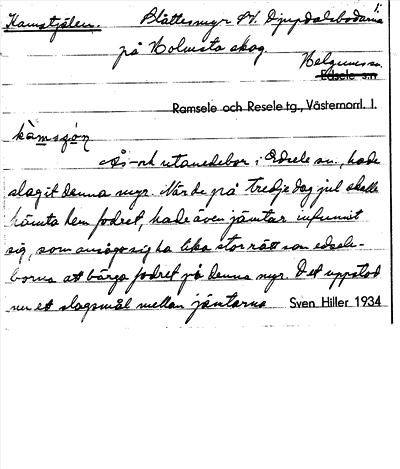 Kamstjälen. Blåttesmyr SV. Djupdalsbodarna 1.
på Holmsta skog.
Helgums sn.
Edsele sn
Ramsele och Resele tg., Västernorrl. l.
kàmsʒo̱n
Ås- och utanedebor i Edsele sn., hade
slagit denna myr. När de på tredje dag jul skulle
hämta hem fodret, hade även jämtar infunnit
sig, som ansågo sig ha lika stor rätt som edsele-
borna att bärga fodret på denna myr. Det uppstod
nu ett slagsmål mellan jämtarna Sven Hiller 1934